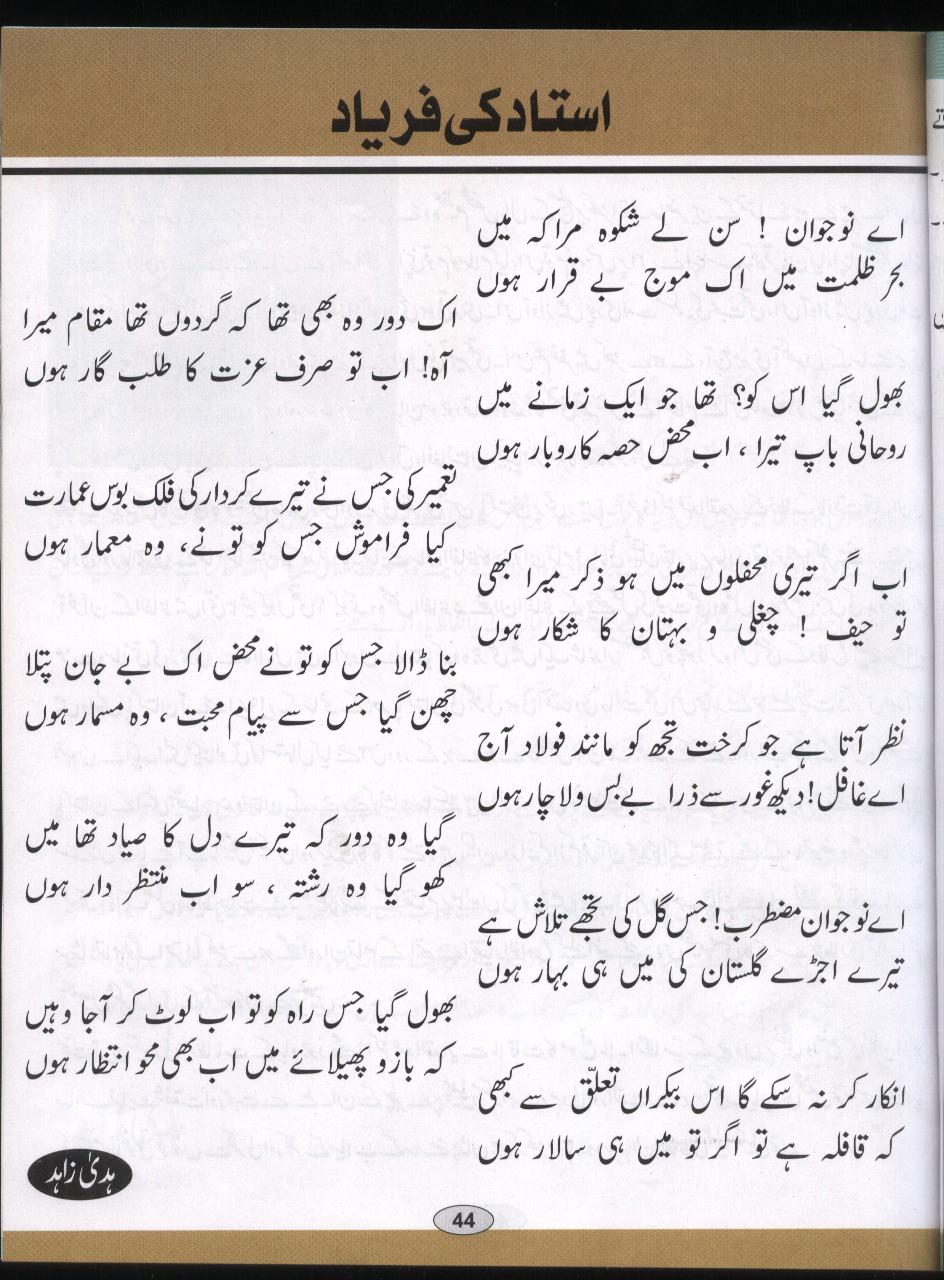 استاد کی فریاد
اے نوجوان ! سن لے شکوہ مرا کہ میں
بحر ظلمت میں اک موج بے قرار ہوں
اک دور وہ بھی تھا کہ گردوں تھا مقام میرا
آہ! اب تو صرف عزت کا طلب گار ہوں
بھول گیا اس کو؟ تھا جو ایک زمانے میں
روحانی باپ تیرا ، اب محض حصہ کاروبار ہوں
تعمیر کی جس نے تیرے کردار کی فلک بوس عمارت
کیا فراموش جس کو تونے، وہ معمار ہوں
اب اگر تیری محفلوں میں ہو ذکر میرا کبھی
تو حیف ! چغلی و بہتان کا شکار ہوں
بنا ڈالا جس کو تونے محض اک بے جان پتلا
چھن گیا جس سے پیام محبت ، وہ مسمار ہوں
نظر آتا ہے جو کرخت تجھ کو مانند فولاد آج
اے غافل! دیکھ غور سے ذرا بے بس ولاچار ہوں
گیا وہ دور کہ تیرے دل کا صیاد تھا میں
کھو گیا وہ رشتہ ، سو اب منتظر دار ہوں
اے نوجوان مضطرب! جس گل کی تجھے تلاش ہے
تیرے اجڑے گلستان کی میں ہی بہار ہوں
بھول گیا جس راہ کو تو اب لوٹ کر آجا وہیں
کہ بازو پھیلائے میں اب بھی محو انتظار ہوں
انکار کر نہ سکے گا اس بیکراں تعلّق سے کبھی
کہ قافلہ ہے تو اگر تو میں ہی سالار ہوں
ہدیٰ زاہد
44